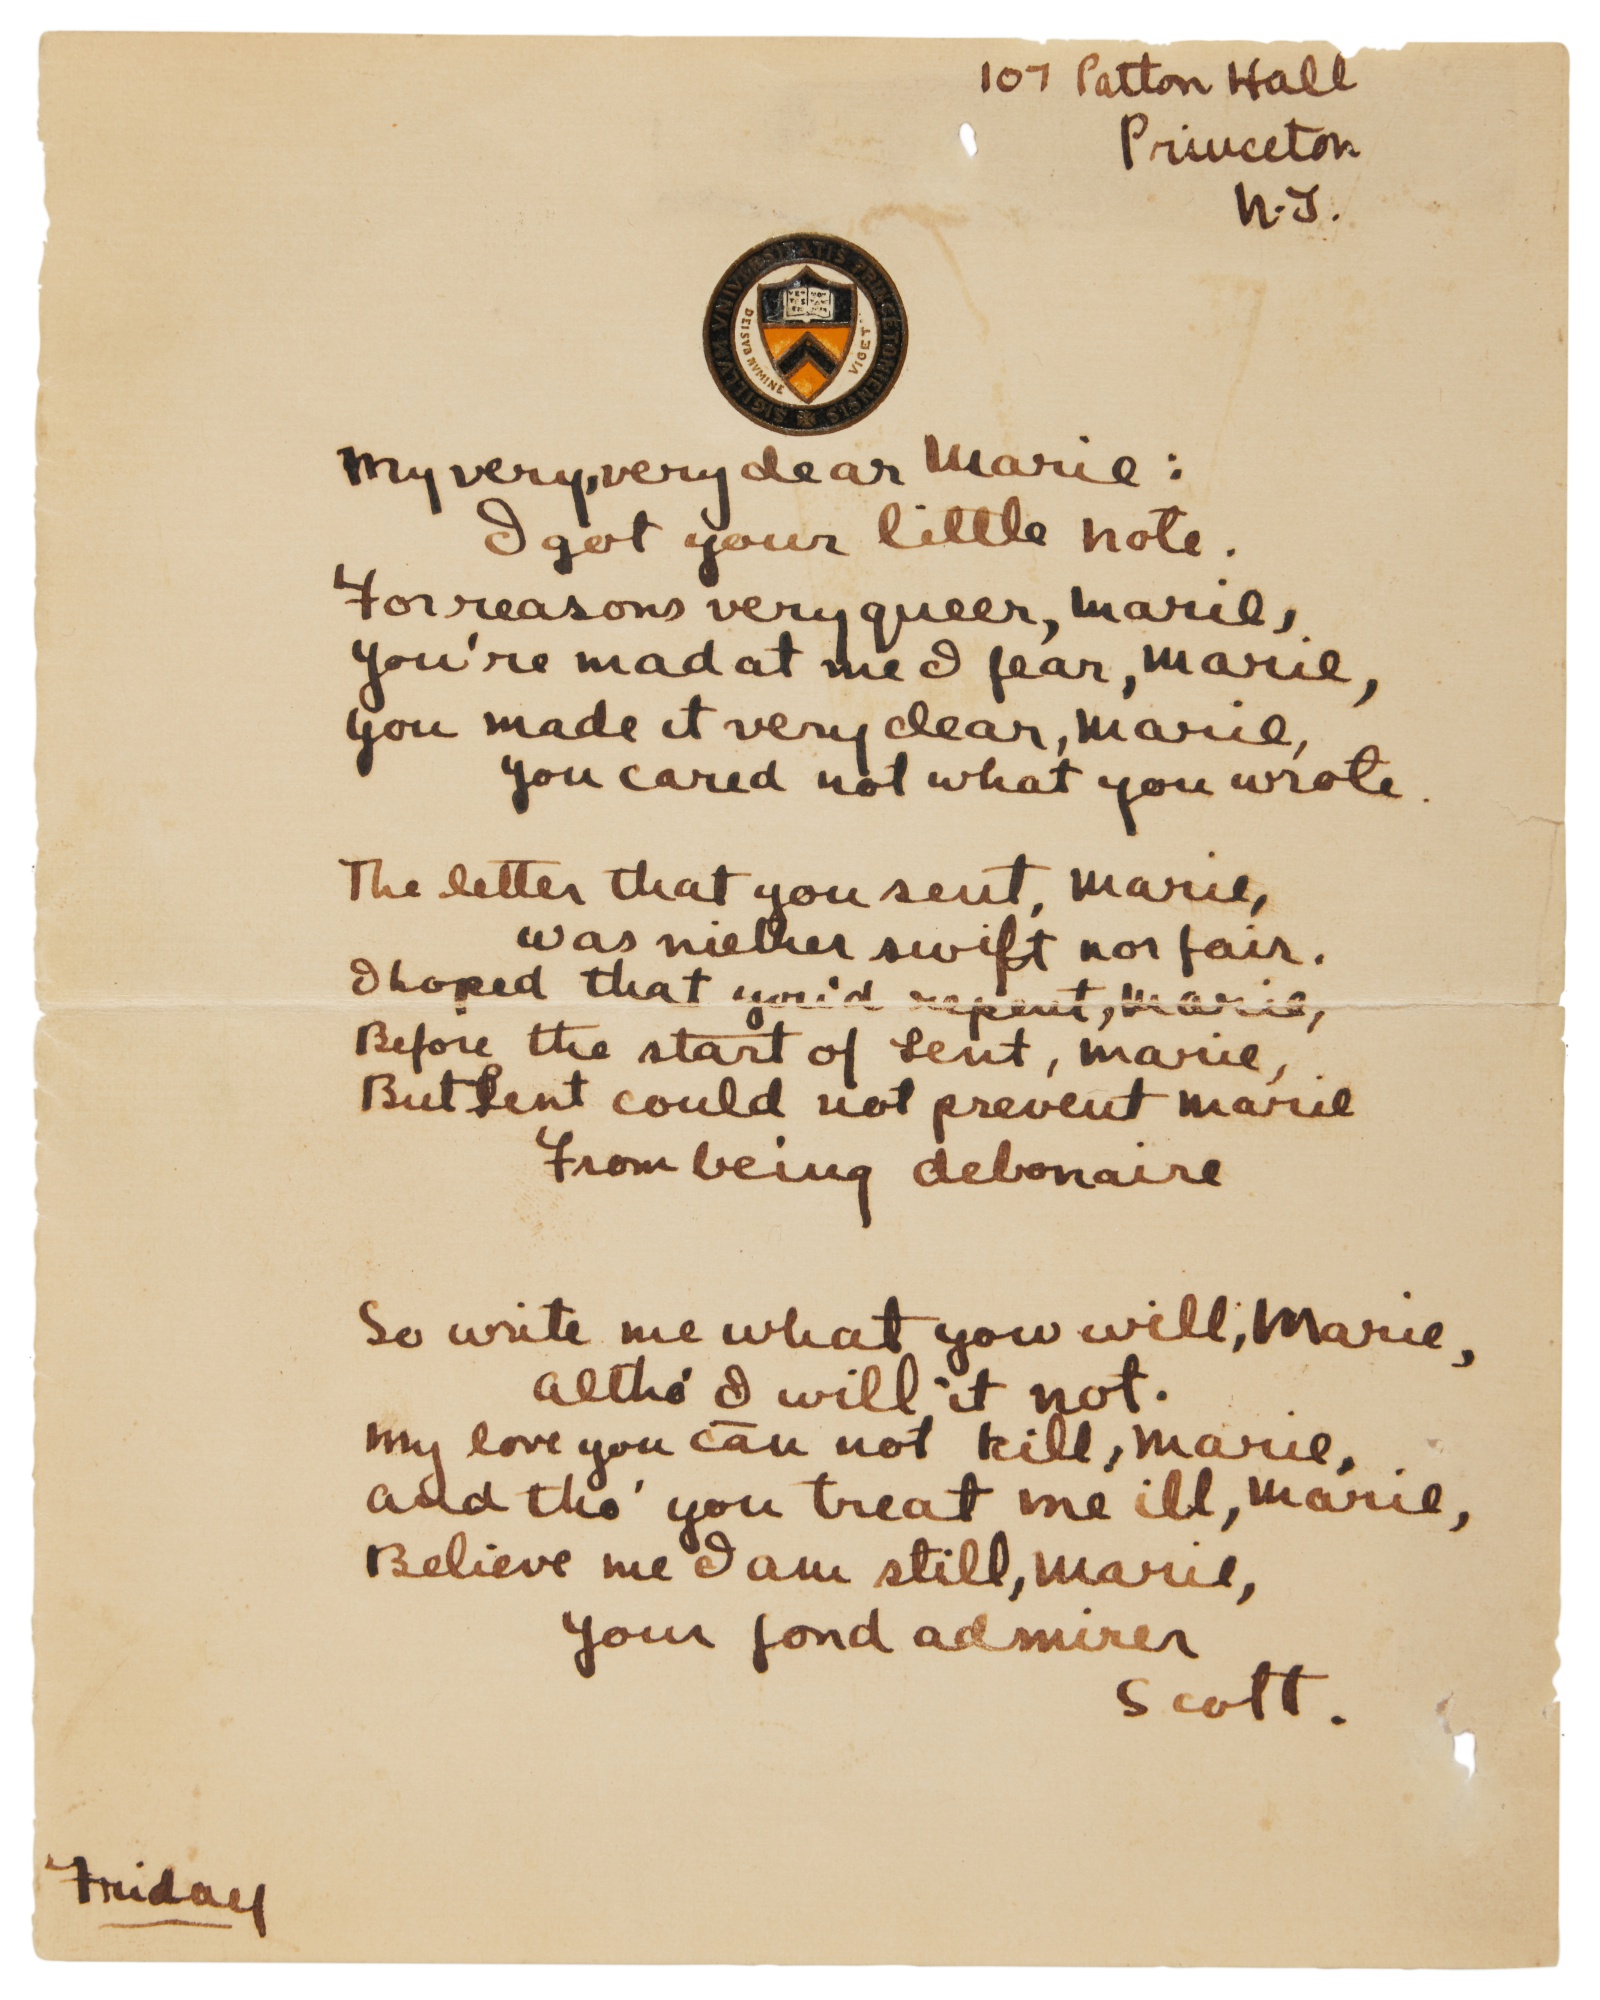 107 Patton Hall
Princeton
N.J.
SIGILLVM VNIVERSITATIS PRINCETONIENSIS
VET NOV
TES TAM
EN TVM
DEI SVB NVMINE VIGET
My very, very dear Marie:
I got your little note.
For reasons very queer, Marie,
You're mad at me I fear, Marie,
You made it very clear, Marie,
You cared not what you wrote.
The letter that you sent, Marie,
was niether swift nor fair.
I hoped that you'd repent, Marie,
Before the start of Lent, Marie,
But Lent could not prevent Marie
From being debonaire
So write me what you will, Marie,
Altho' I will it not.
My love you can not kill, Marie,
And tho' you treat me ill, Marie,
Believe me I am still, Marie,
Your fond admirer
Scott.
Friday